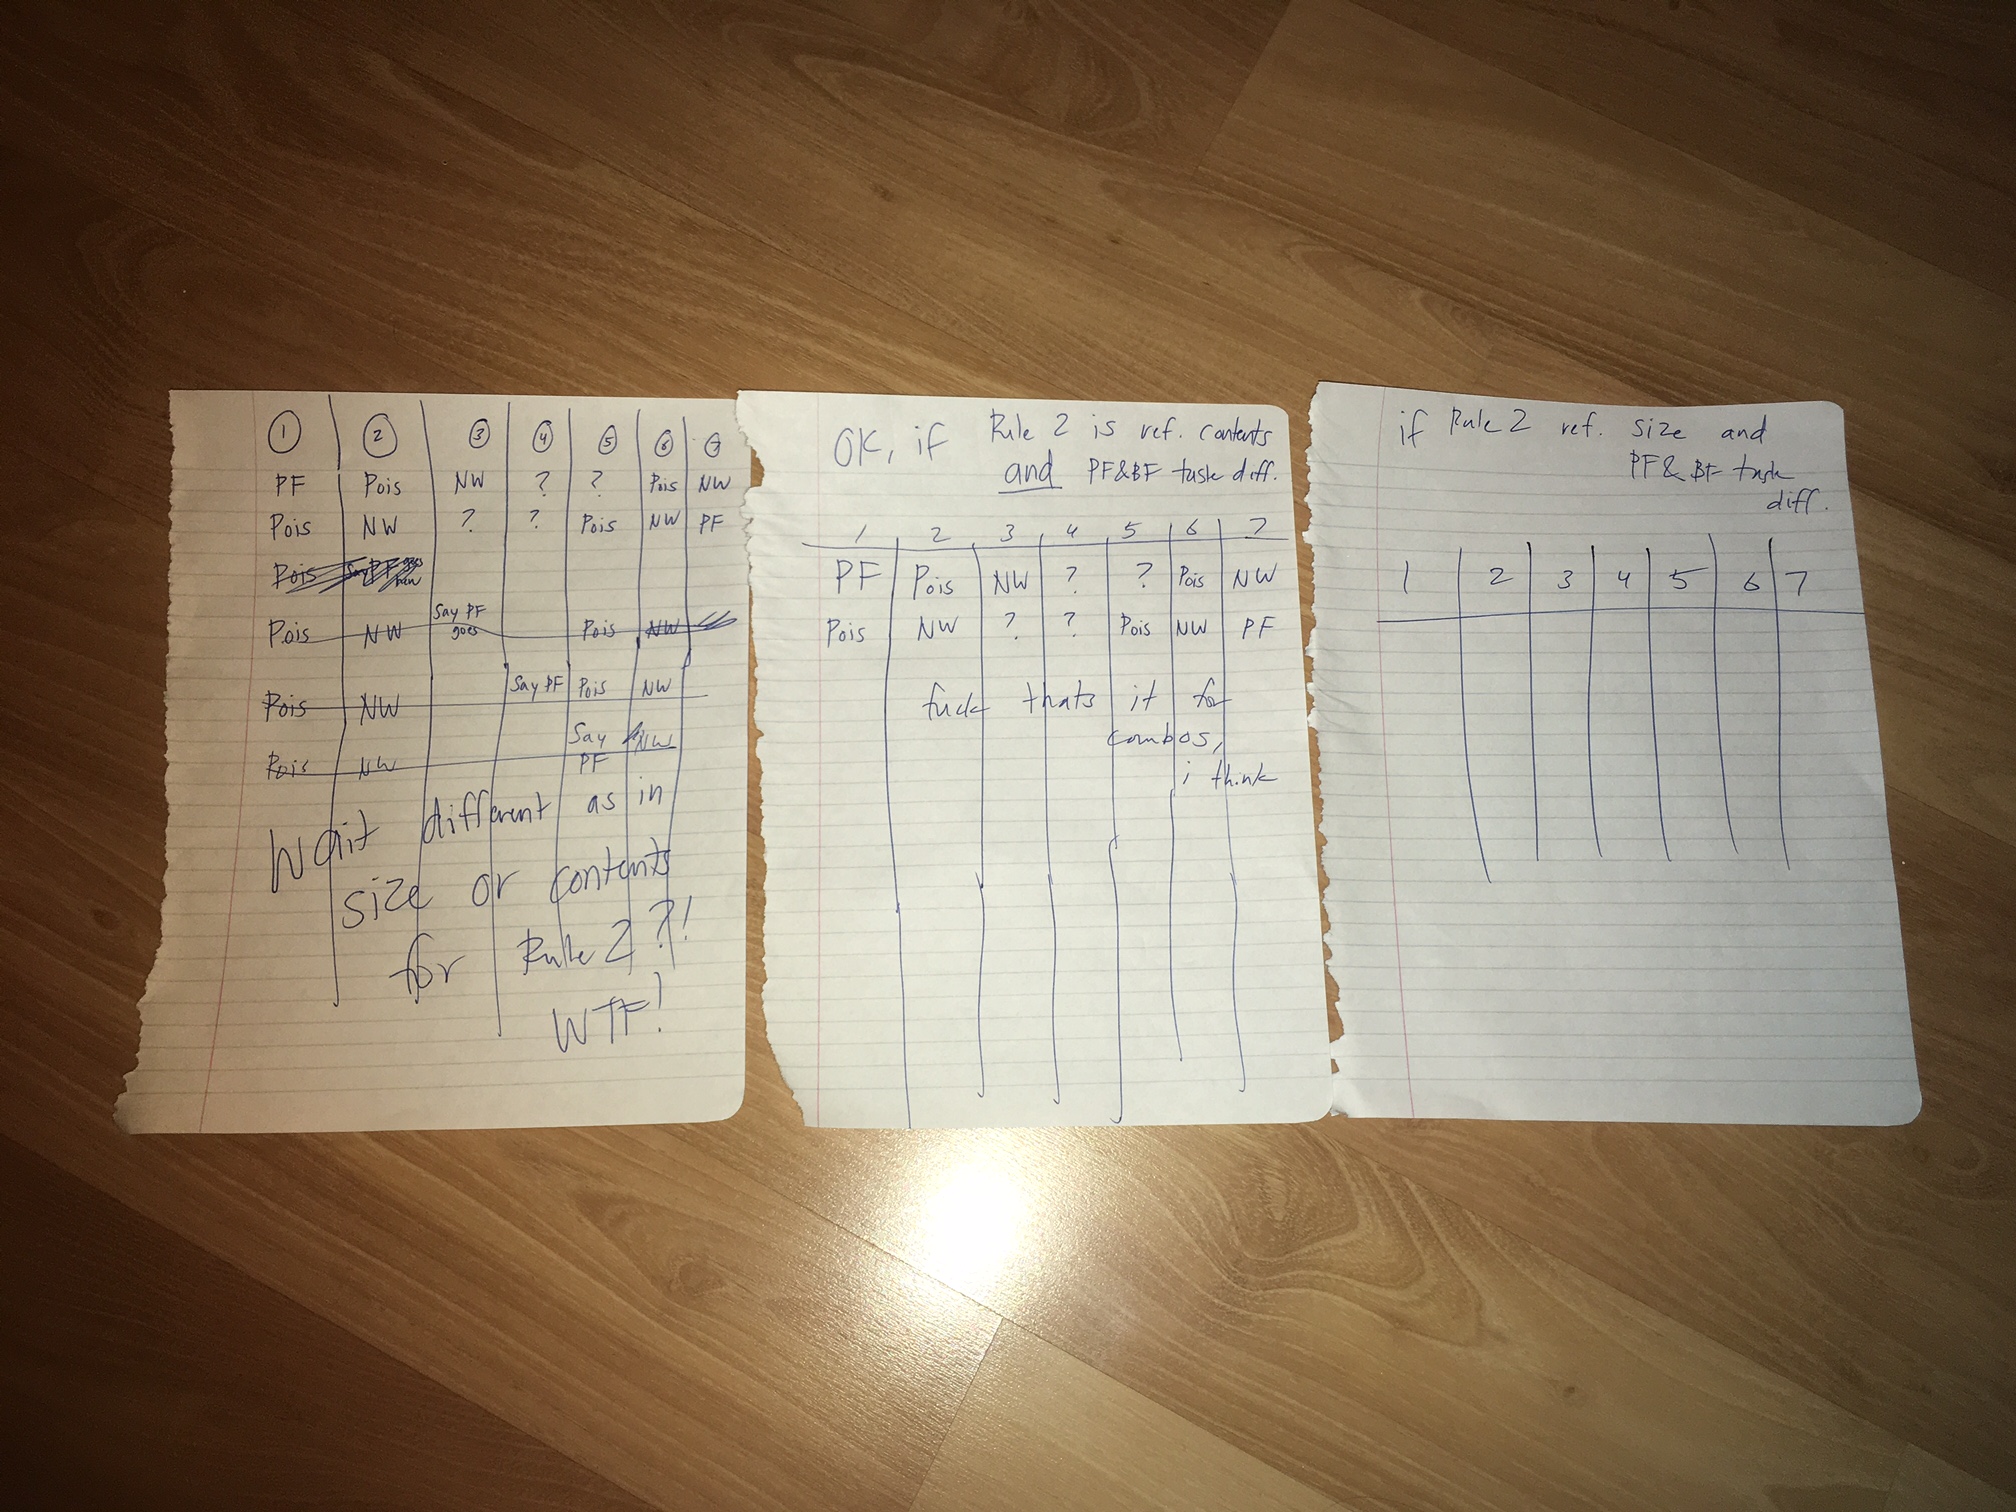 ① ② ③ ④ ⑤ ⑥ ⑦
PF Pois NW ? ? Pois NW
Pois NW ? ? Pois NW PF
Pois Say PF goes here
Pois NW Say PF goes Pois NW
Pois NW Say PF Pois NW
Pois NW Say PF NW
Wait different as in
size or contents
for Rule 2?!
WTF!
OK, if Rule 2 is ref. contents
and PF&BF task diff.
1 2 3 4 5 6 7
PF Pois NW ? ? Pois NW
Pois NW ? ? Pois NW PF
fuck thats it for
combos,
i think
if Rule 2 ref. size and
PF & BF task
diff.
1 2 3 4 5 6 7